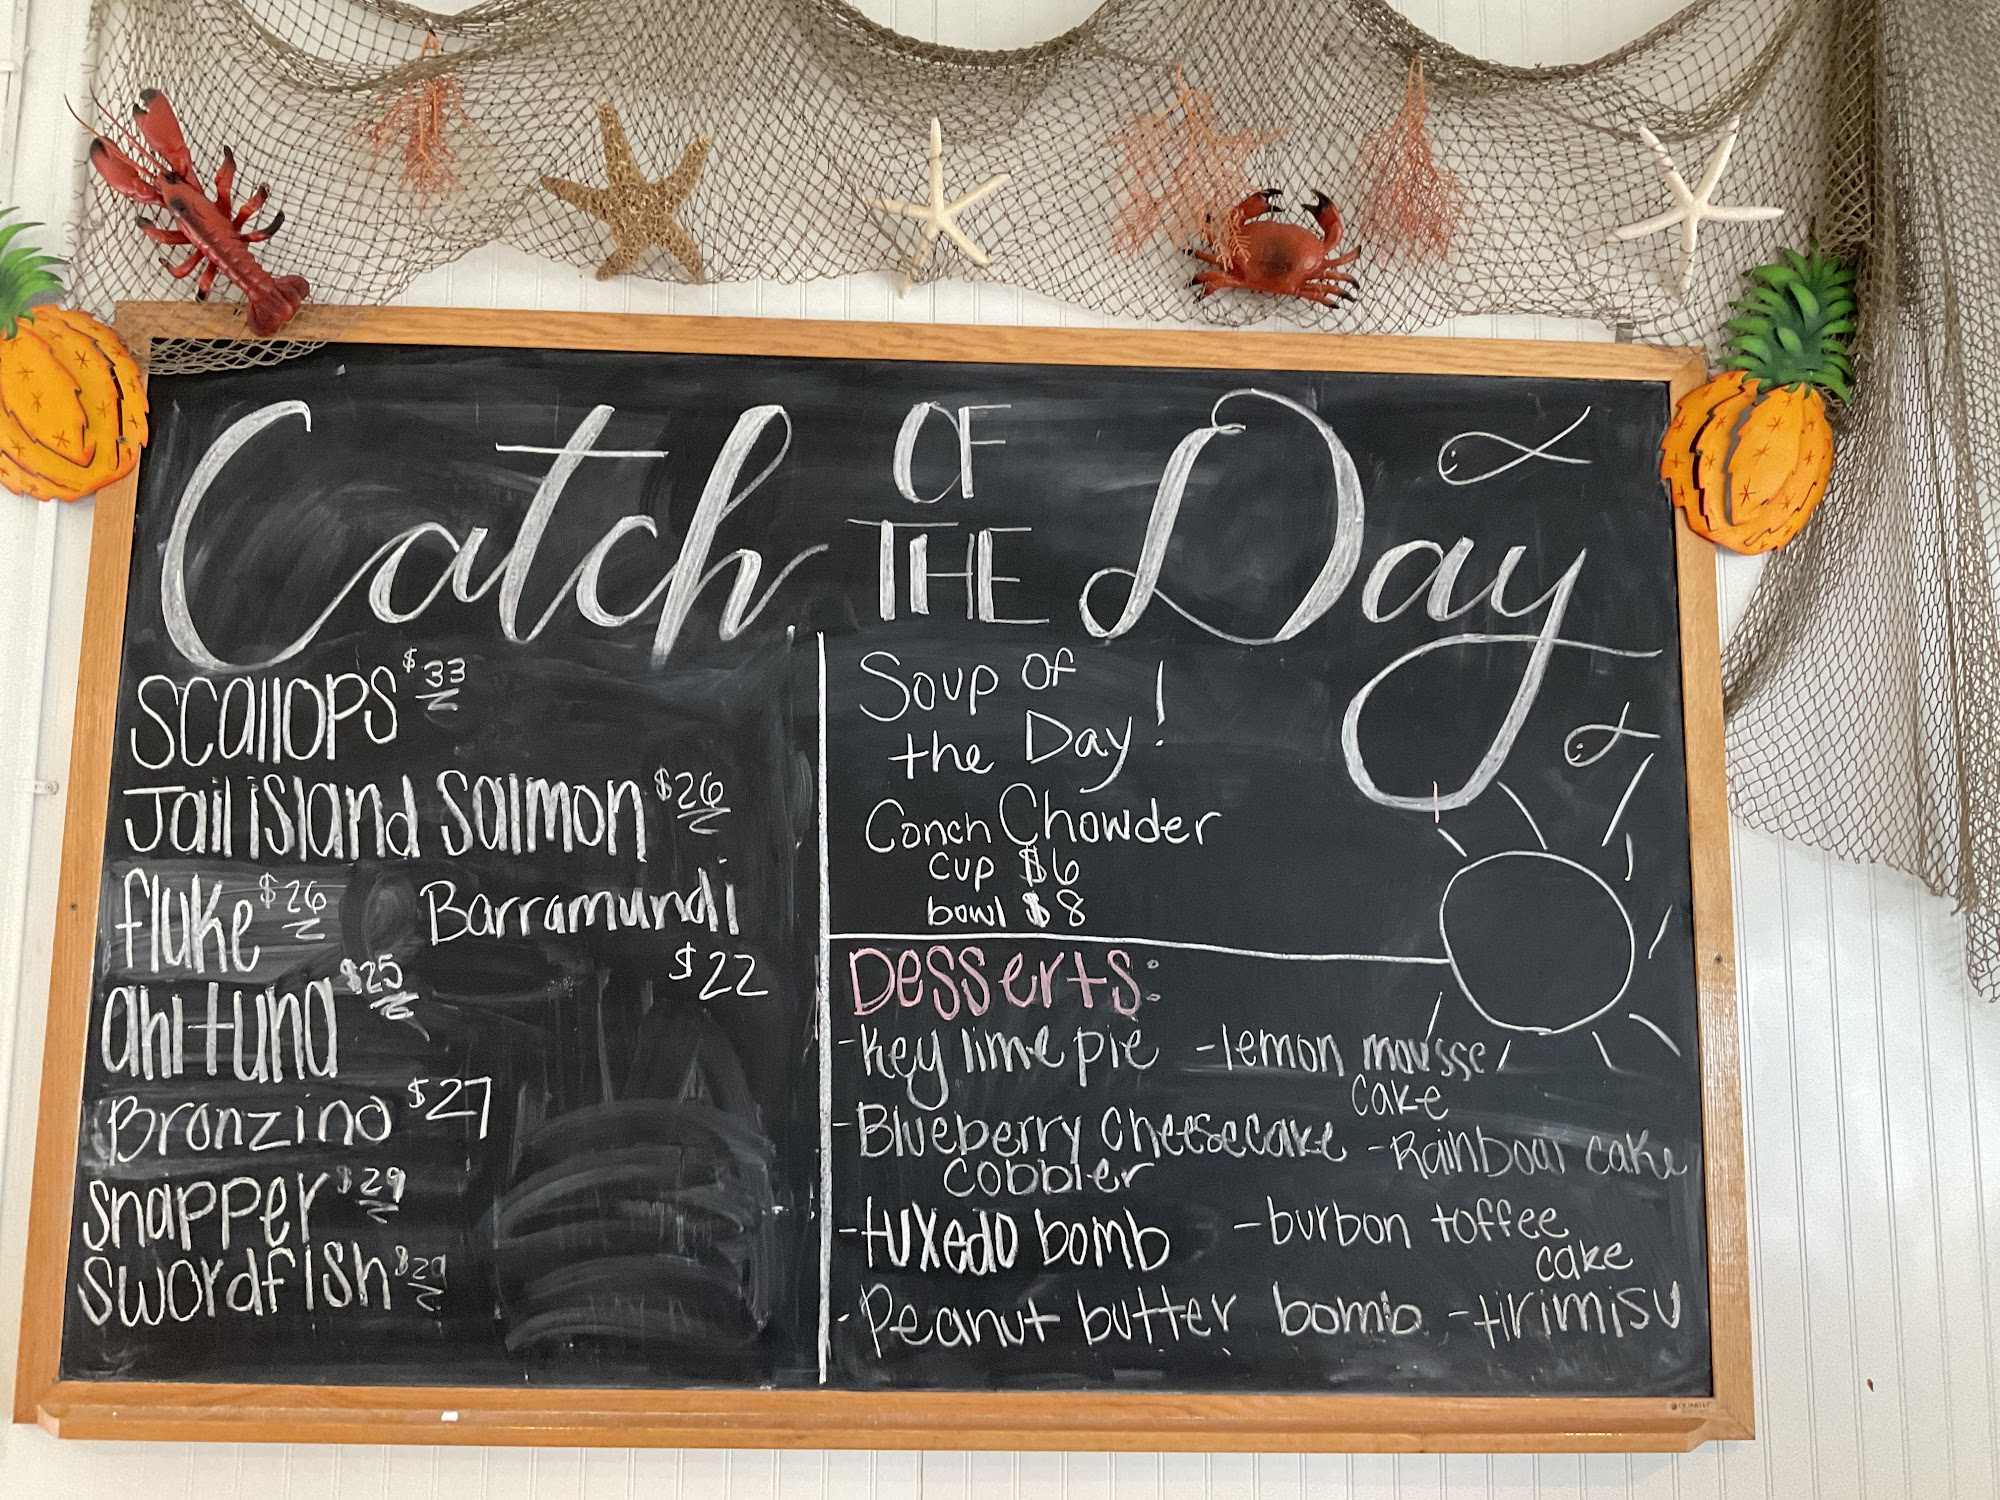 Catch OF THE Day
Scallops $33
Jail island Salmon $26
fluke $26 Barramundi
$22
ahi tuna $25
Bronzino $27
Snapper $29
Swordfish $29
Soup Of
the Day!
Conch Chowder
cup $6
bowl $8
Desserts:
-key lime pie -lemon mousse
cake
-Blueberry Cheesecake
cobbler
-Rainboat cake
-tuxedo bomb -burbon toffee
cake
-Peanut butter bomb -tirimisu